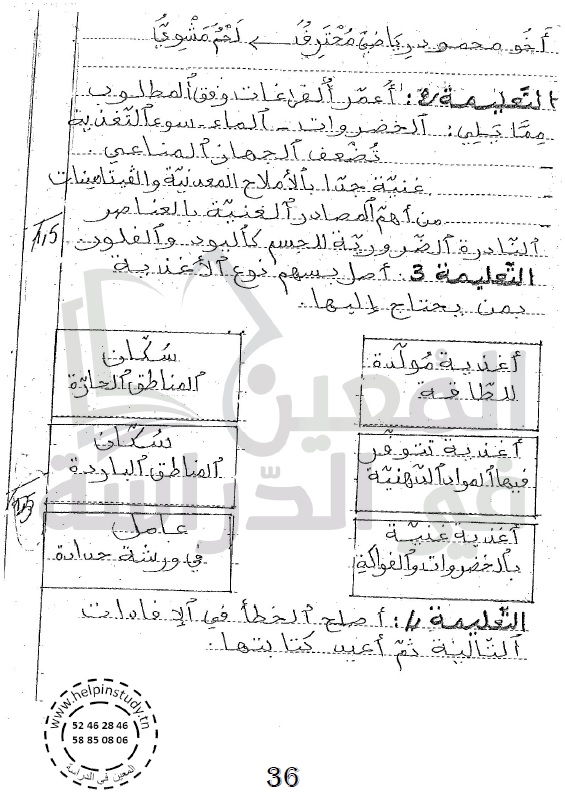 أَخُو محمود رياضيّ مُحْتَرِفٌ ← لَحْمٌ مَشْوِيٌّ
التّعليمة 2: أعمّر الفراغات وفق المطلوب
ممّا يلي: الخضروات - الماء - سوء التّغذية
تُضْعف الجهاز المناعي.
غنيّة جدّا بالأملاح المعدنيّة والڤيتامينات
من أهمّ المصادر الغنيّة بالعناصر
النّادرة الضّروريّة للجسم كاليود والفلور.
1,5
التّعليمة 3: أصل بسهم نوع الأغذية
بمن يحتاج إليها.
أغذية مُولّدة
للطّاقة
سكّان
المناطق الحارّة
أغذية تتوفّر
فيها المواد الدّهنيّة
سكّان
المناطق الباردة
1,5
أغذية غنيّة
بالخضروات والفواكه
عامل
في ورشة حدادة
التّعليمة 4: أصلح الخطأ في الإفادات
التّالية ثمّ أعيد كتابتها.
المعين في الدراسة
www.helpinstudy.tn
52 46 28 46
58 85 08 06
المعين في الدراسة
36